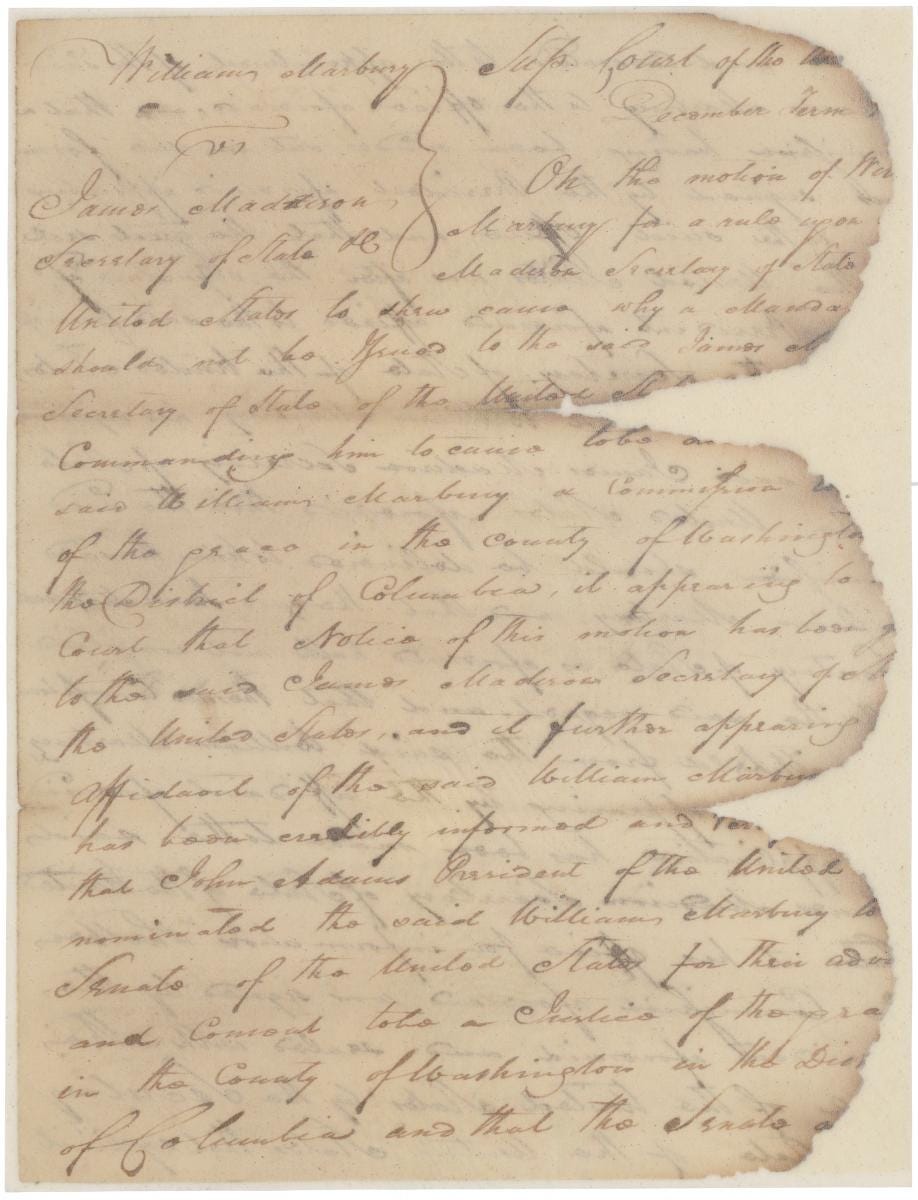 William Marbury
vs
James Maddison
Secretary of State &c
Sup. Court of the
December Term
On the motion of
Marbury for a rule upon
Madison Secretary of State
United States to shew cause why a Manda
should not be Issued to the said James M
Secretary of State of the United St
Commanding him to cause to be
said William Marbury a Commission
of the peace in the county of Washington
the District of Columbia, it appearing to
Court that Notice of this motion has been g
to the said James Madison Secretary of St
the United States, and it further appearing
affidavit of the said William Marbu
has been credibly informed and
that John Adams President of the United
nominated the said William Marbury to
Senate of the United States for their advi
and Consent to be a Justice of the pea
in the County of Washington in the Dis
of Columbia and that the Senate a